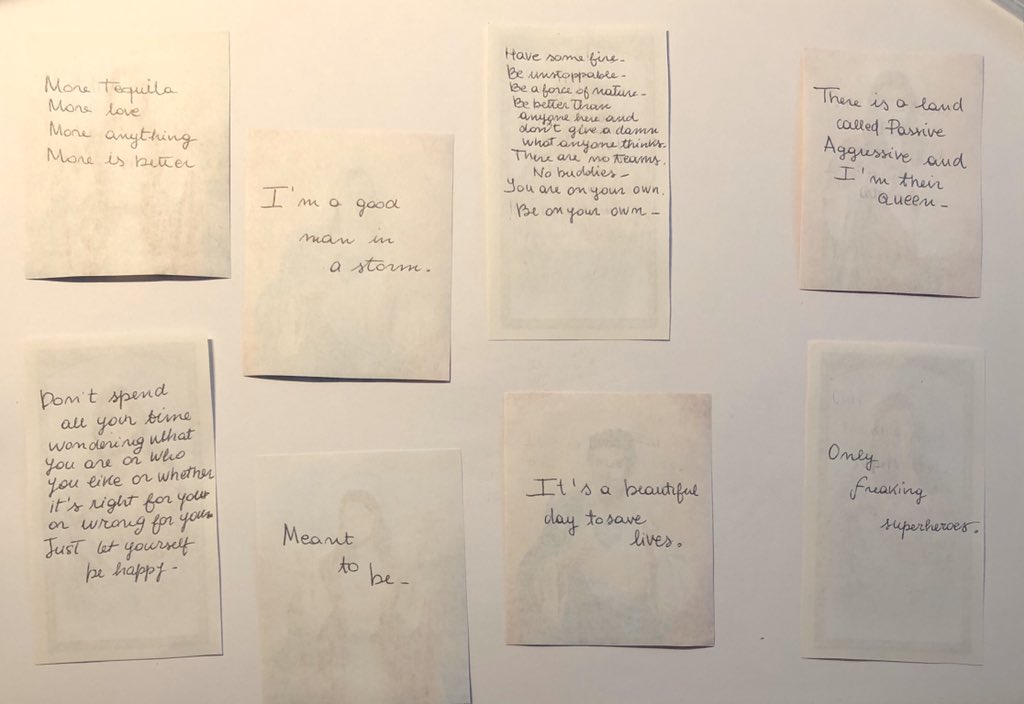 More Tequila
More love
More anything
More is better
I'm a good
man in
a storm.
Have some fire_
Be unstoppable_
Be a force of nature_
Be better than
anyone here and
don't give a damn
what anyone thinks.
There are no teams.
No buddies_
You are on your own.
Be on your own_
There is a land
called Passive
Aggressive and
I'm their
queen_
Don't spend
all your time
wondering what
you are or who
you like or whether
it's right for your
or wrong for you.
Just let yourself
be happy_
Meant
to be_
It's a beautiful
day to save
lives.
Only
freaking
superheroes.